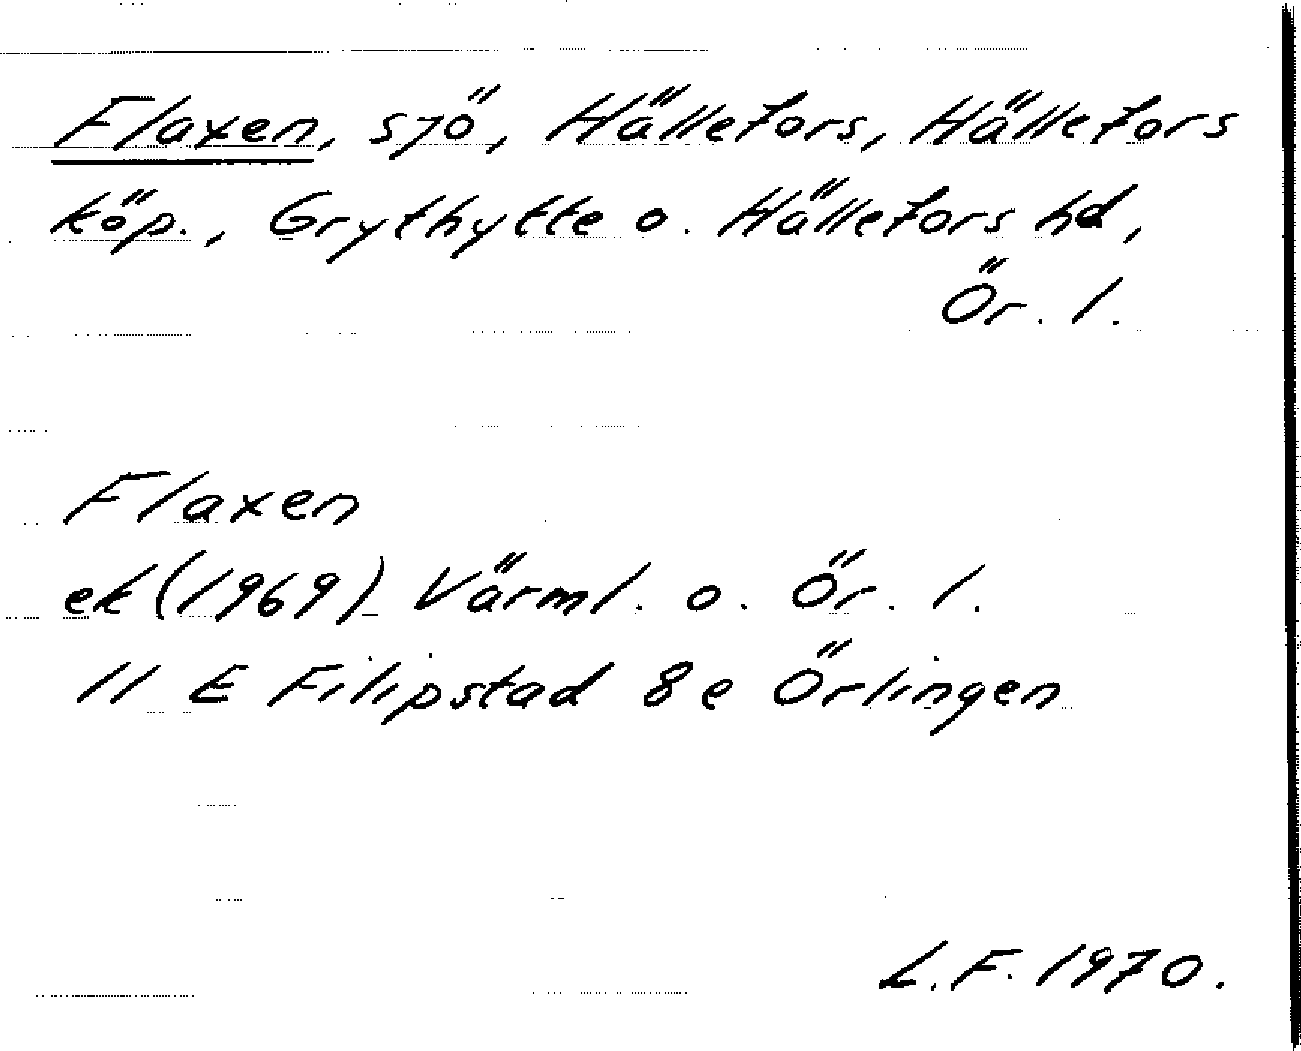 Flaxen, sjö, Hällefors, Hällefors
köp., Grythytte o. Hällefors hd,
Ör. l.
Flaxen
ek (1969) Värml. o. Ör. l.
11 E Filipstad 8e Örlingen
L.F. 1970.